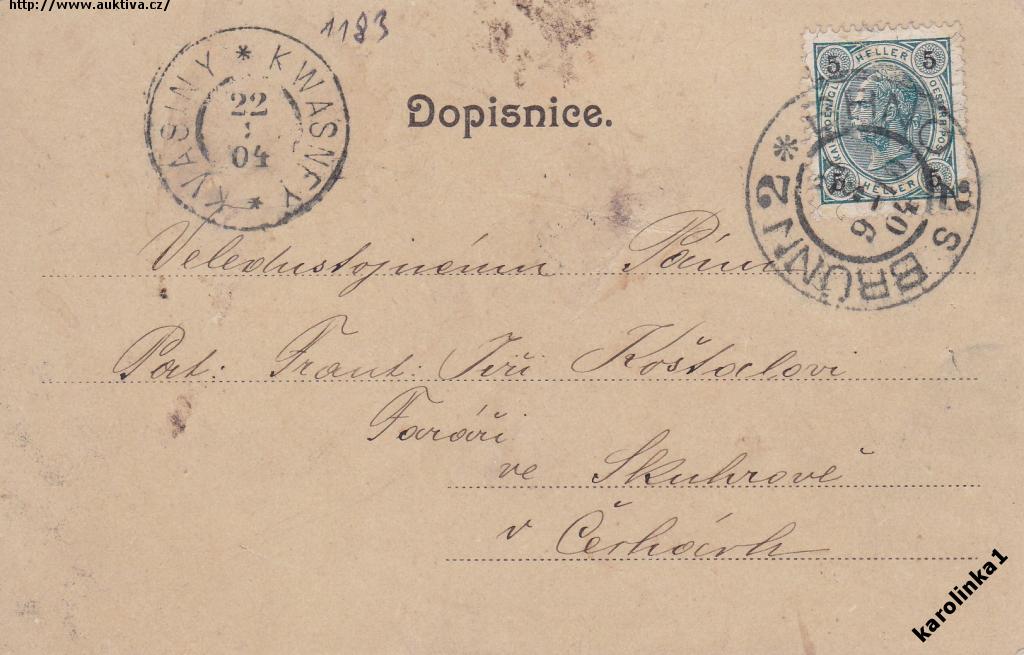 http://www.auktiva.cz/
1183
KVASINY * KWASNEY *
22
04
Dopisnice.
5 HELLER 5
5 HELLER 5
BRÜNN 2 *
04
Veledustojnému Pánu
Pat: Frant: Jiří Košťálovi
Faráři
ve Skuhrově
v Čechách
karolinka1